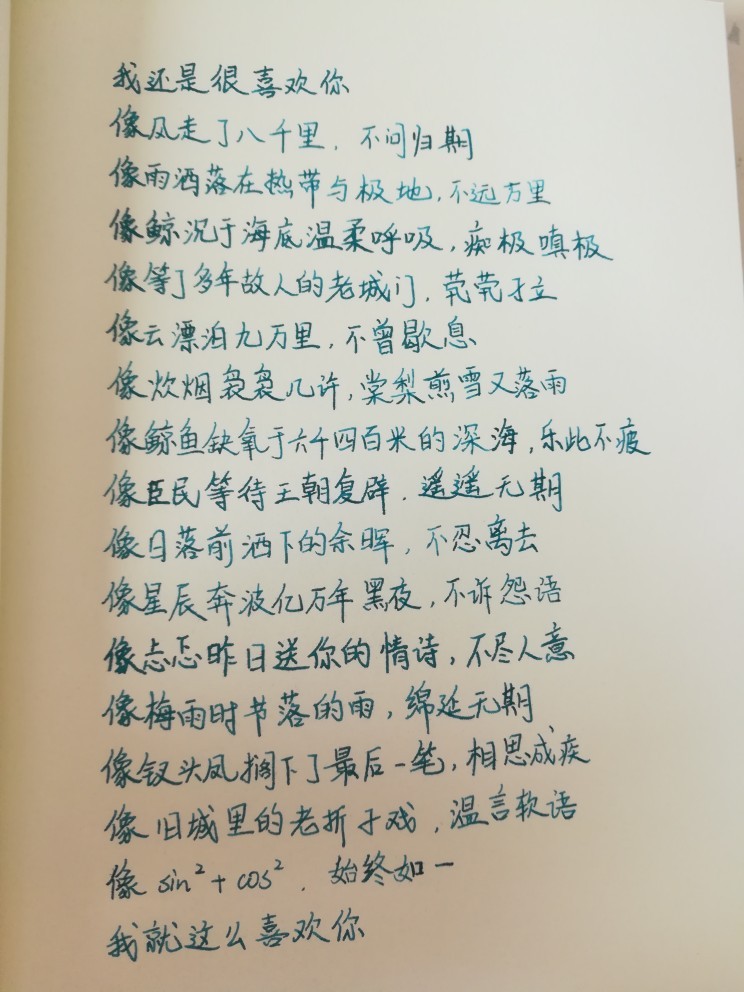 我还是很喜欢你
像风走了八千里，不问归期
像雨洒落在热带与极地，不远万里
像鲸沉于海底温柔呼吸，痴极嗔极
像等了多年故人的老城门，茕茕孑立
像云漂泊九万里，不曾歇息
像炊烟袅袅几许，棠梨煎雪又落雨
像鲸鱼缺氧于六千四百米的深海，乐此不疲
像臣民等待王朝复辟，遥遥无期
像日落前洒下的余晖，不忍离去
像星辰奔波亿万年黑夜，不诉怨语
像忐忑昨日送你的情诗，不尽人意
像梅雨时节落的雨，绵延无期
像钗头凤搁下了最后一笔，相思成疾
像旧城里的老折子戏，温言软语
像 sin²+cos²，始终如一
我就这么喜欢你